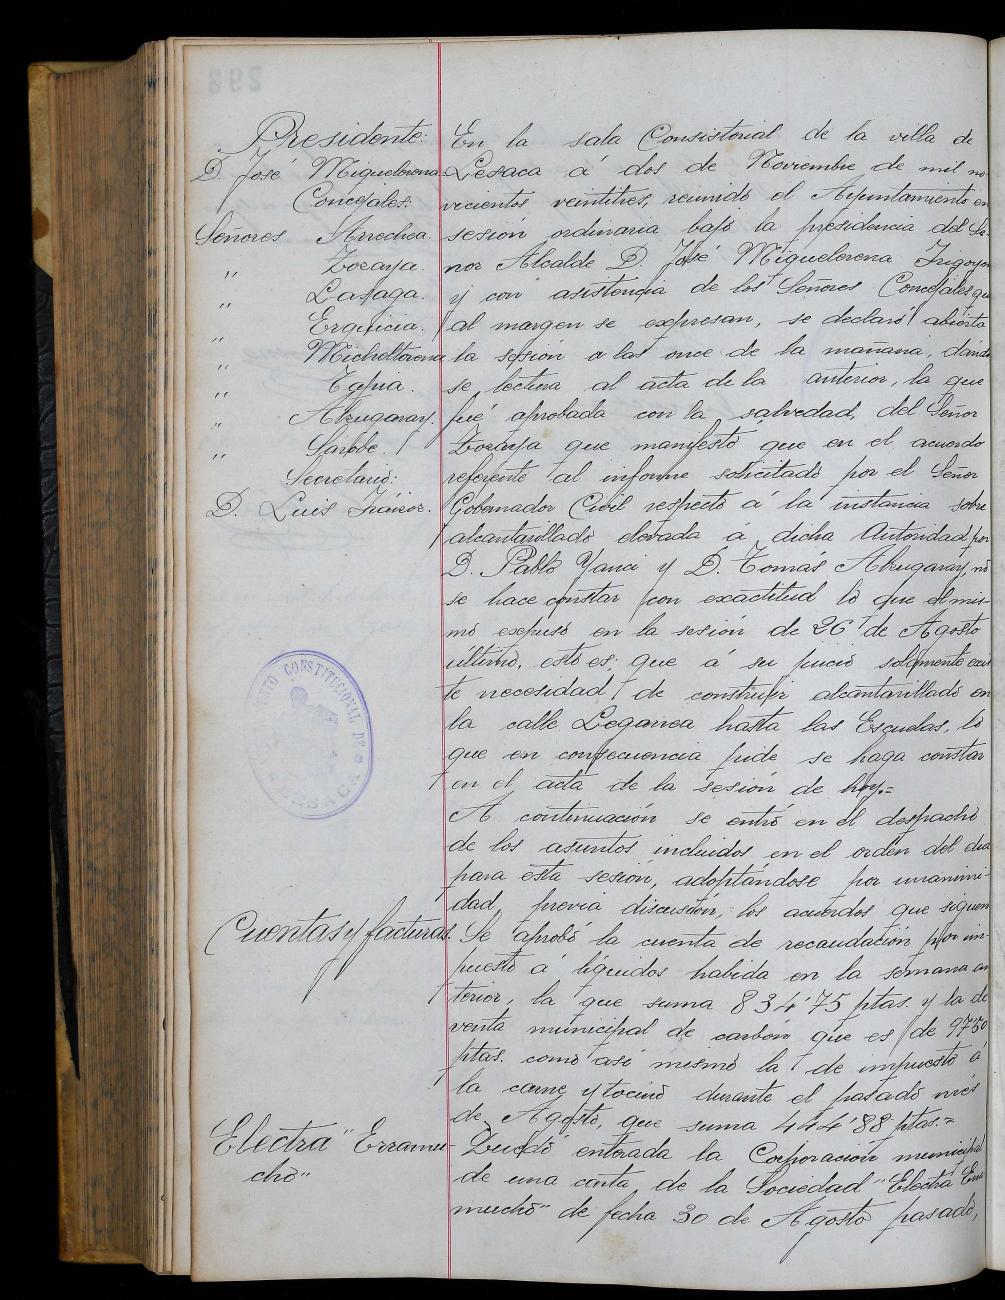 Presidente:
D. José Miguelorena
Concejales:
Señores Arrechea.
" Zozaya.
" Lasaga.
" Erquicia.
" Micheltorena
" Tapia.
" Alzugaray.
" Sarobe.
Secretario:
D. Luis
En la sala Consistorial de la villa de
Lesaca á dos de Noviembre de mil no-
vecientos veintitres, reunido el Ayuntamiento en
sesión ordinaria bajo la presidencia del Se-
ñor Alcalde D. José Miguelorena Irigoyen
y con asistencia de los Señores Concejales que
al margen se expresan, se declaró abierta
la sesión a las once de la mañana, dándo
se lectura al acta de la anterior, la que
fué aprobada con la salvedad, del Señor
Zozaya que manifestó que en el acuerdo
referente al informe solicitado por el Señor
Gobernador Civil respecto á la instancia sobre
alcantarillado elevada á dicha Autoridad por
D. Pablo Yanci y D. Tomás Alzugaray, no
se hace constar con exactitud lo que el mis-
mo expuso en la sesión de 26 de Agosto
último, esto es; que á su juicio solamente exis
te necesidad de construir alcantarillado en
la calle Legarrea hasta las Escuelas, lo
que en consecuencia pide se haga constar
en el acta de la sesión de hoy.=
A continuación se entró en el despacho
de los asuntos incluidos en el orden del dia
para esta sesión, adoptándose por unanimi-
dad, previa discusión, los acuerdos que siguen
Cuentas y facturas.
Se aprobó la cuenta de recaudación por im-
puesto á líquidos habida en la semana an
terior, la que suma 834'75 ptas. y la de
venta municipal de carbón que es de 97'50
ptas. como asi mismo la de impuesto á
la carne y tocino durante el pasado mes
de Agosto, que suma 444'88 ptas.=
Electra "Erramu-
cho"
Quedó enterada la Corporación municipal
de una carta, de la Sociedad "Electra Erra
mucho" de fecha 30 de Agosto pasado,
CONSTITUCIONAL DE
LESACA
298